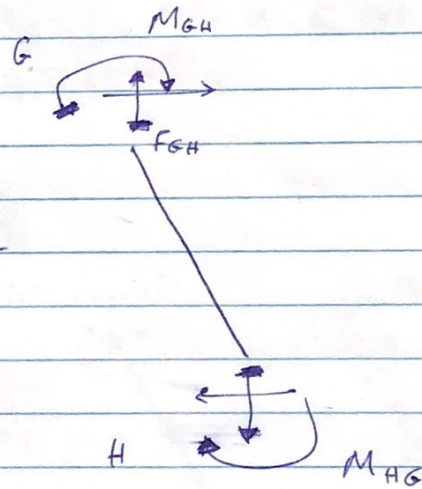 M_GH
G
F_GH
H
M_HG